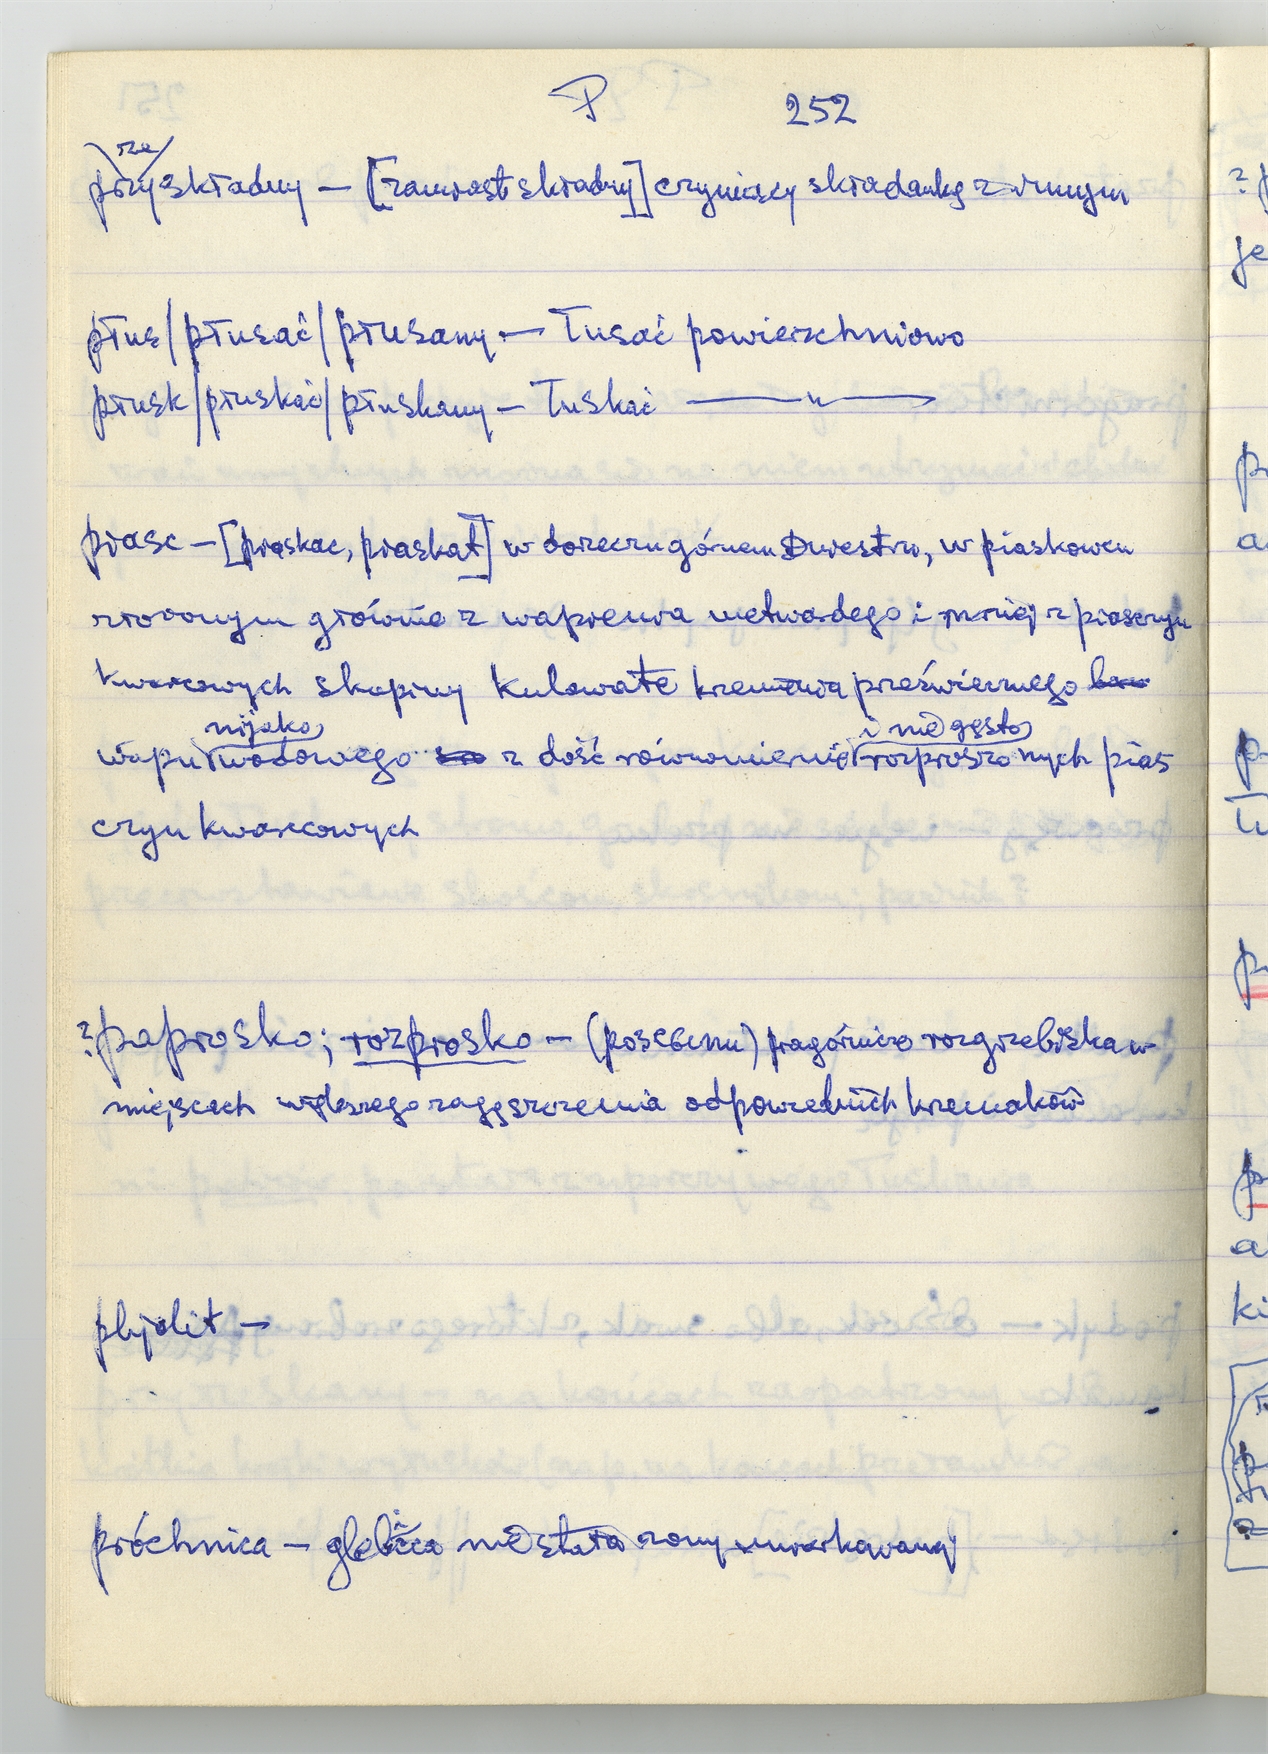 P 252
rze
przyskładny — [zamiast składny] czyniący składankę z innym
płus/płusać/płusany — łusać powierzchniowo
płusk/płuskać/płuskany — łuskać —"—
piasc — [piaskac, piaskat] w dorzeczu górnem Dniestru, w piaskowcu
złożonym głównie z wapienia nietwardego i mniej z piasczyn
kwarcowych skupiny kulowate krzemienia przeświecnego
nijako i nie gęsto
wapni wodowego z dość równomiernie rozproszonych pias
czyn kwarcowych
? paprosko; rozprosko — (posębnu) pragórnicze rozgrzebiska w
miejscach większego zagęszczenia odpowiednich krzemaków
phjolit —
próchnica — glebica nie stara zony